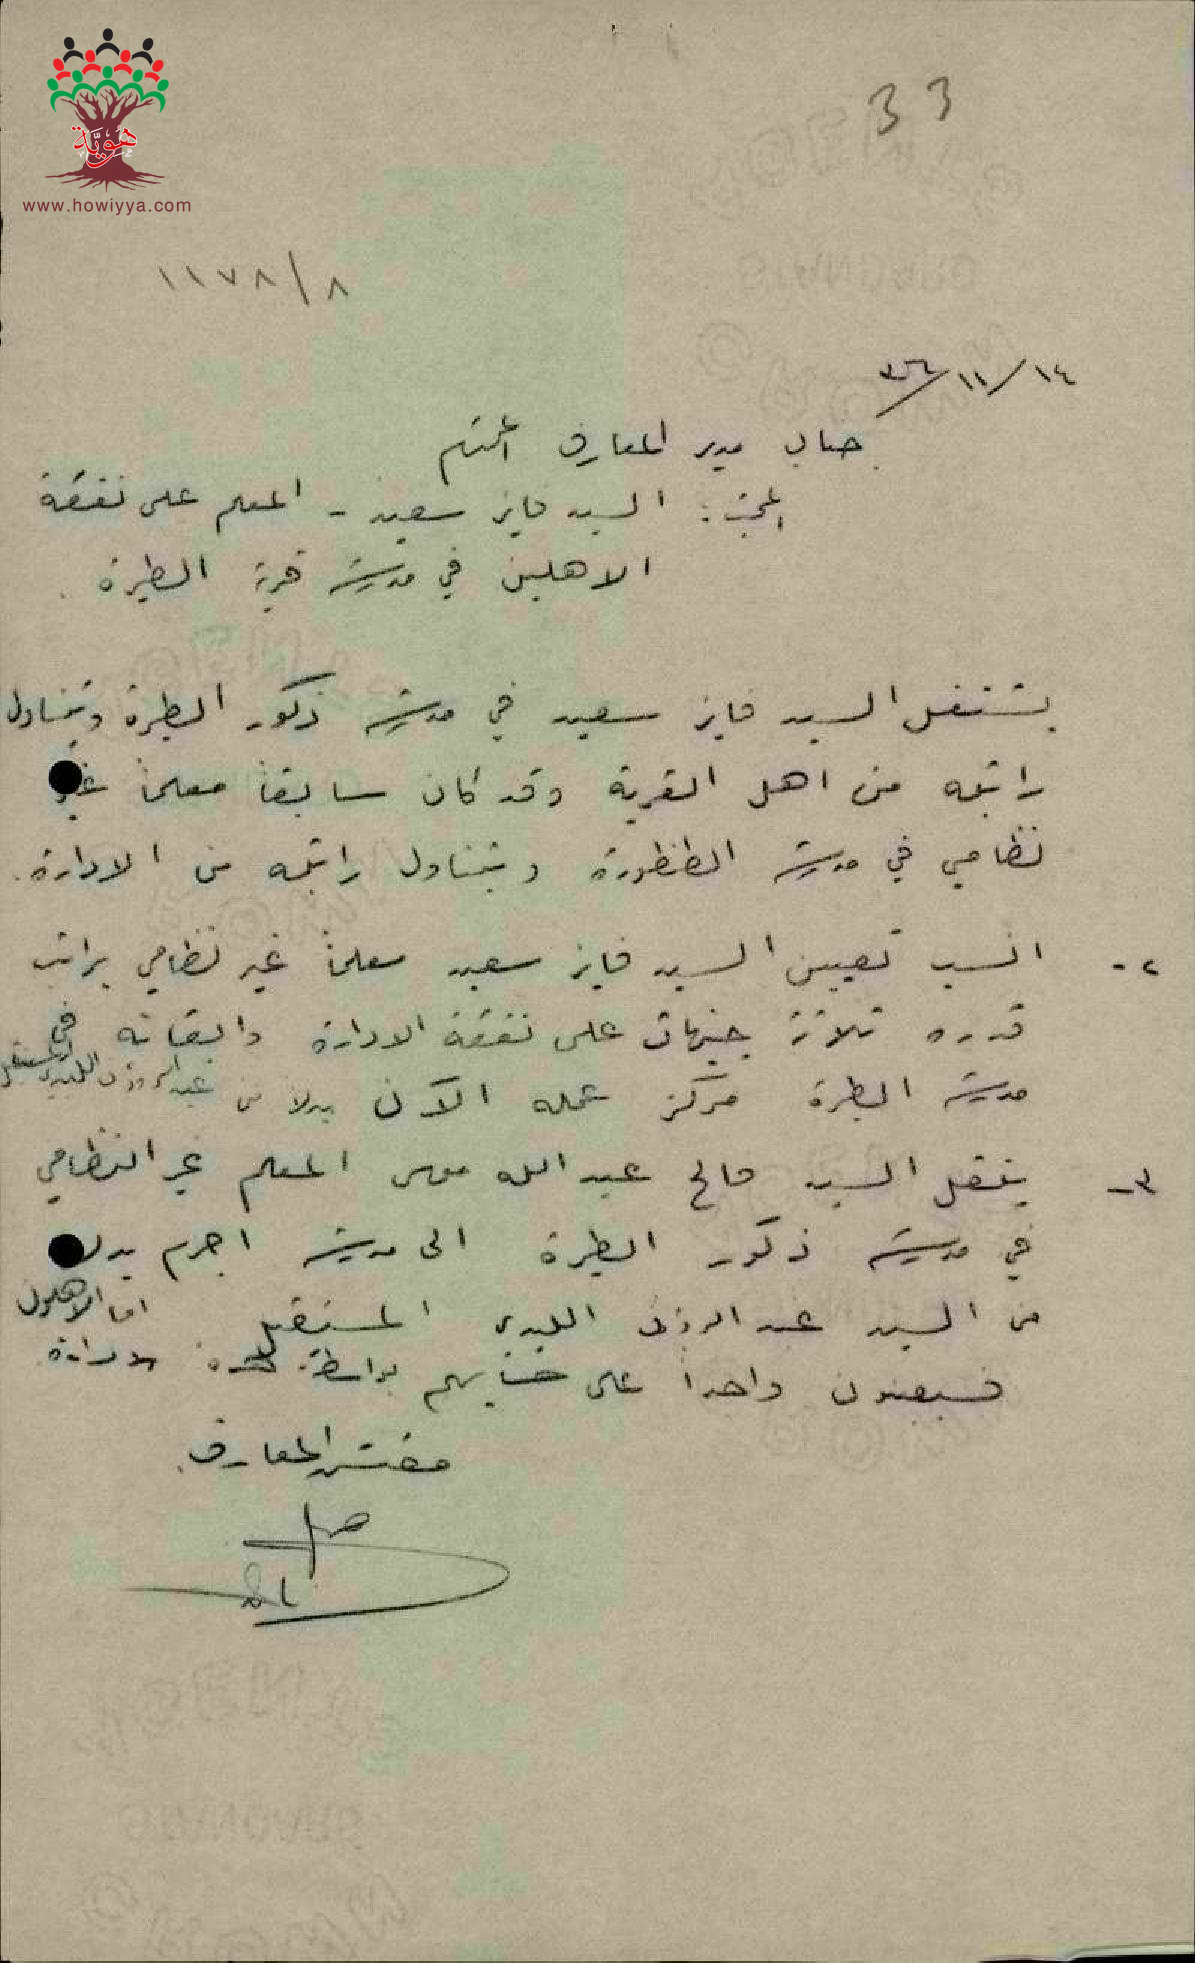 هوية
www.howiyya.com
33
١١٧٨/٨
١٤/١١/٣٦
جناب مدير المعارف المحترم
المبحث: السيد فايز سعيد - المعلم على نفقة
الاهلين في مدرسة قرية الطيرة.
يشتغل السيد فايز سعيد في مدرسة ذكور الطيرة ويتناول
راتبه من اهل القرية وقد كان سابقاً معلماً غير
نظامي في مدرسة الطنطورة ويتناول راتبه من الادارة.
٢- انسب تعيين السيد فايز سعيد معلماً غير نظامي براتب
قدره ثلاثة جنيهات على نفقة الادارة وابقائه في
مدرسة الطيرة مركز عمله الآن بدلا من عبد الرزاق اللبدي المستقيل
٣- ينقل السيد صالح عبد الله موسى المعلم غير النظامي
في مدرسة ذكور الطيرة الى مدرسة اجزم بدلا
من السيد عبد الرزاق اللبدي المستقيل اما الاهلون
فسيعينون واحداً على حسابهم بواسطة الادارة
مفتش المعارف.